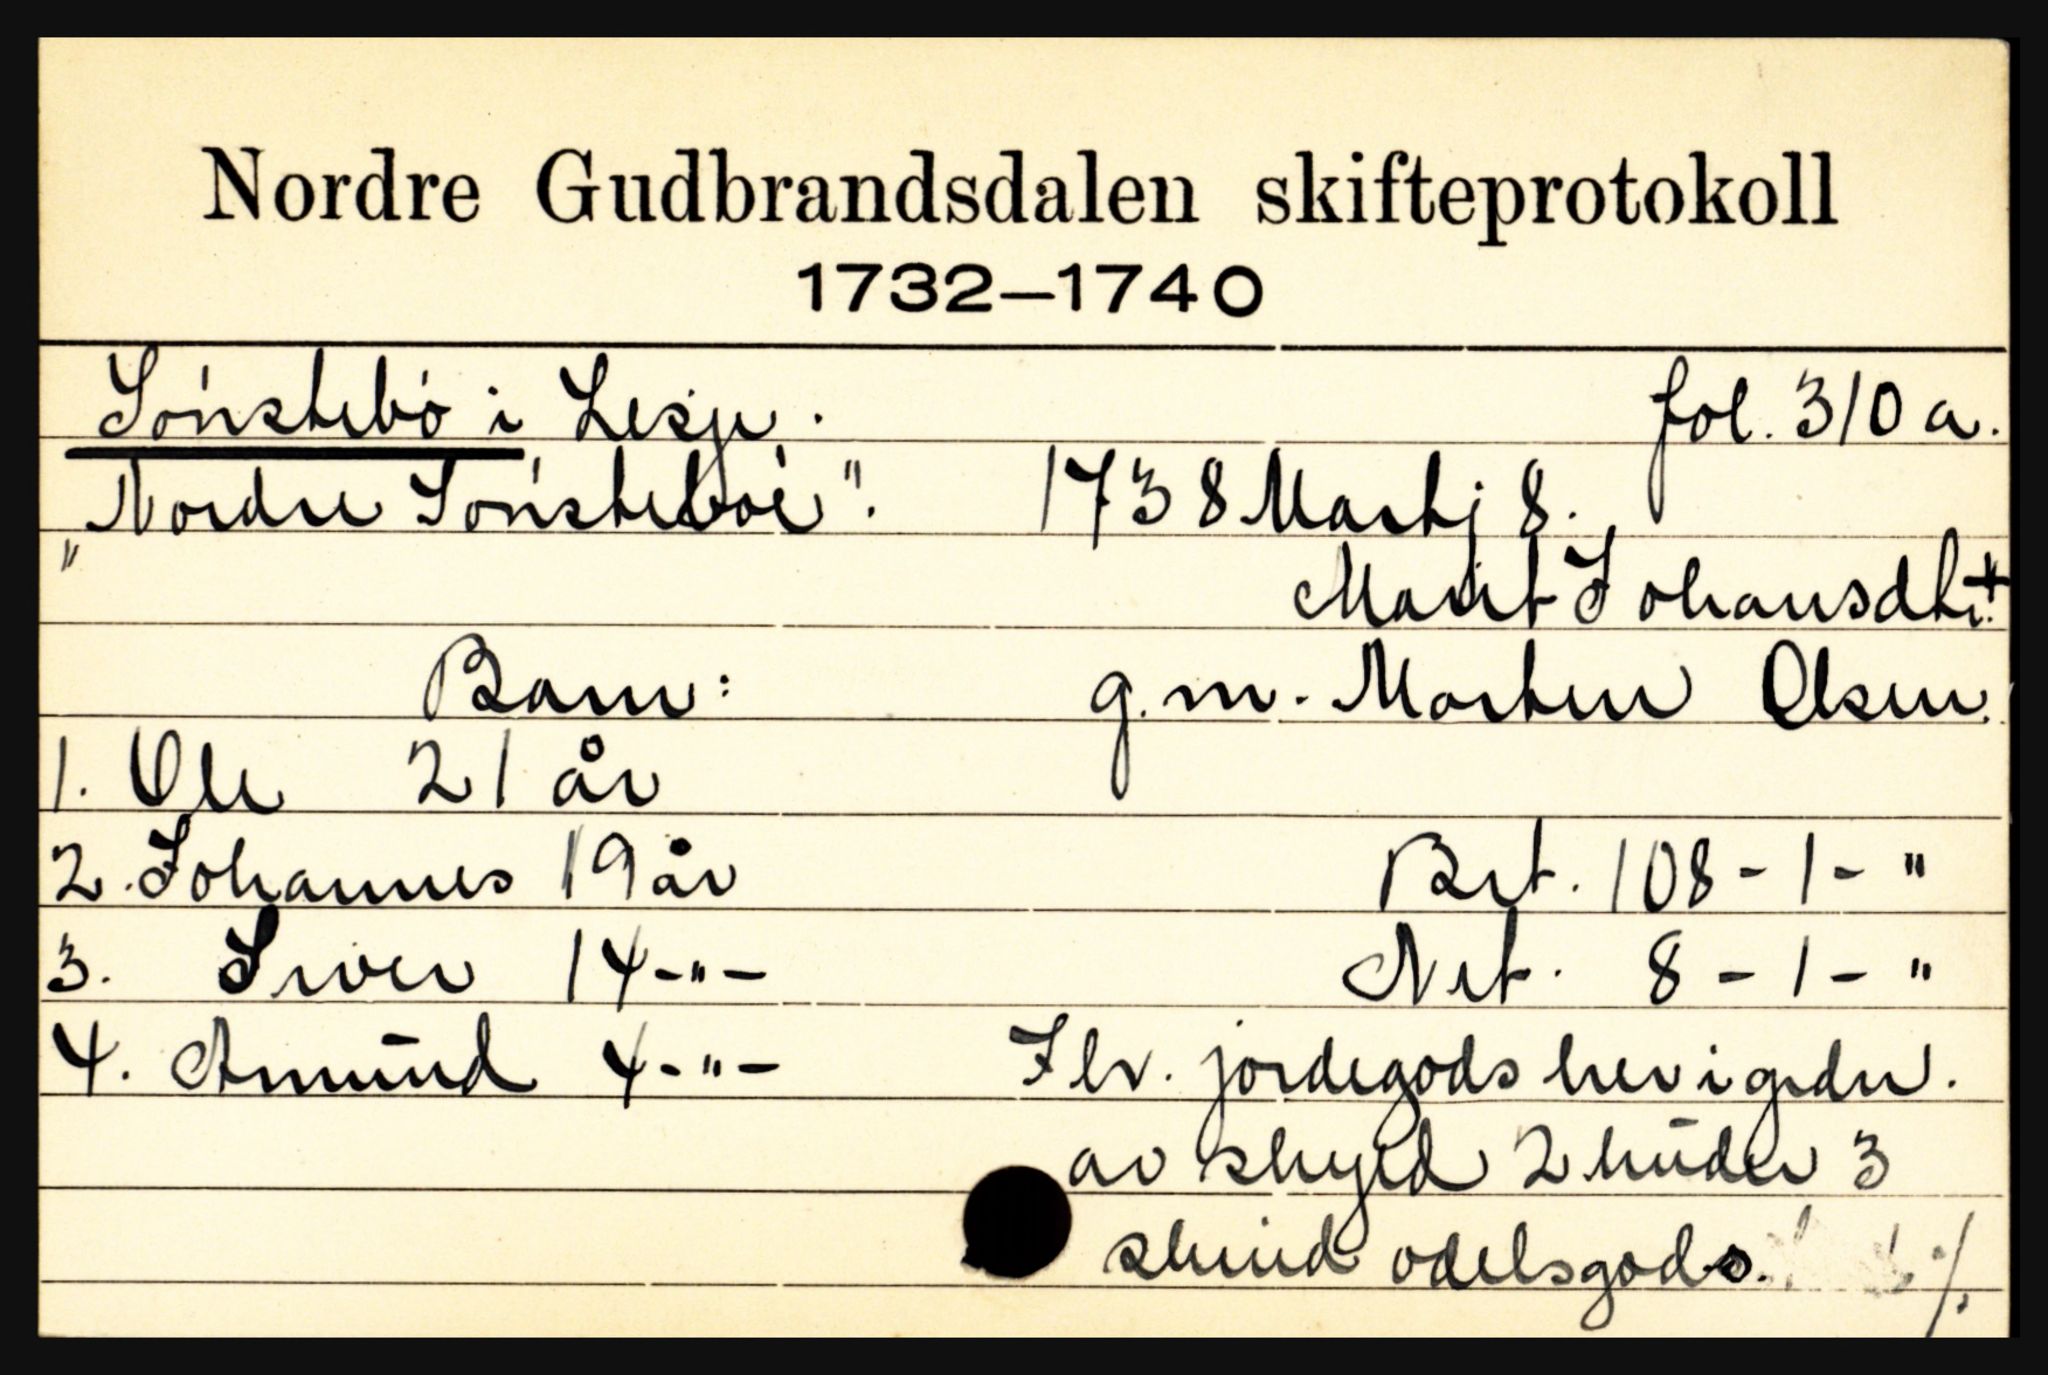 Nordre Gudbrandsdalen skifteprotokoll
1732—1740
Sönstebö i Lesje. fol. 310 a.
"Nordre Sönsteboe". 1738 Martj 8.
Marit Johansdtr. +
Barn: g.m. Morten Olsen.
1. Ole 21 år
2. Johannes 19 år Brt. 108 - 1 - "
3. Iver 14 - " - Net. 8 - 1 - "
4. Amund 4 - " - Flv. jordegods her i grdn.
av skyld 2 huder 3
skind odelsgods. ·/.